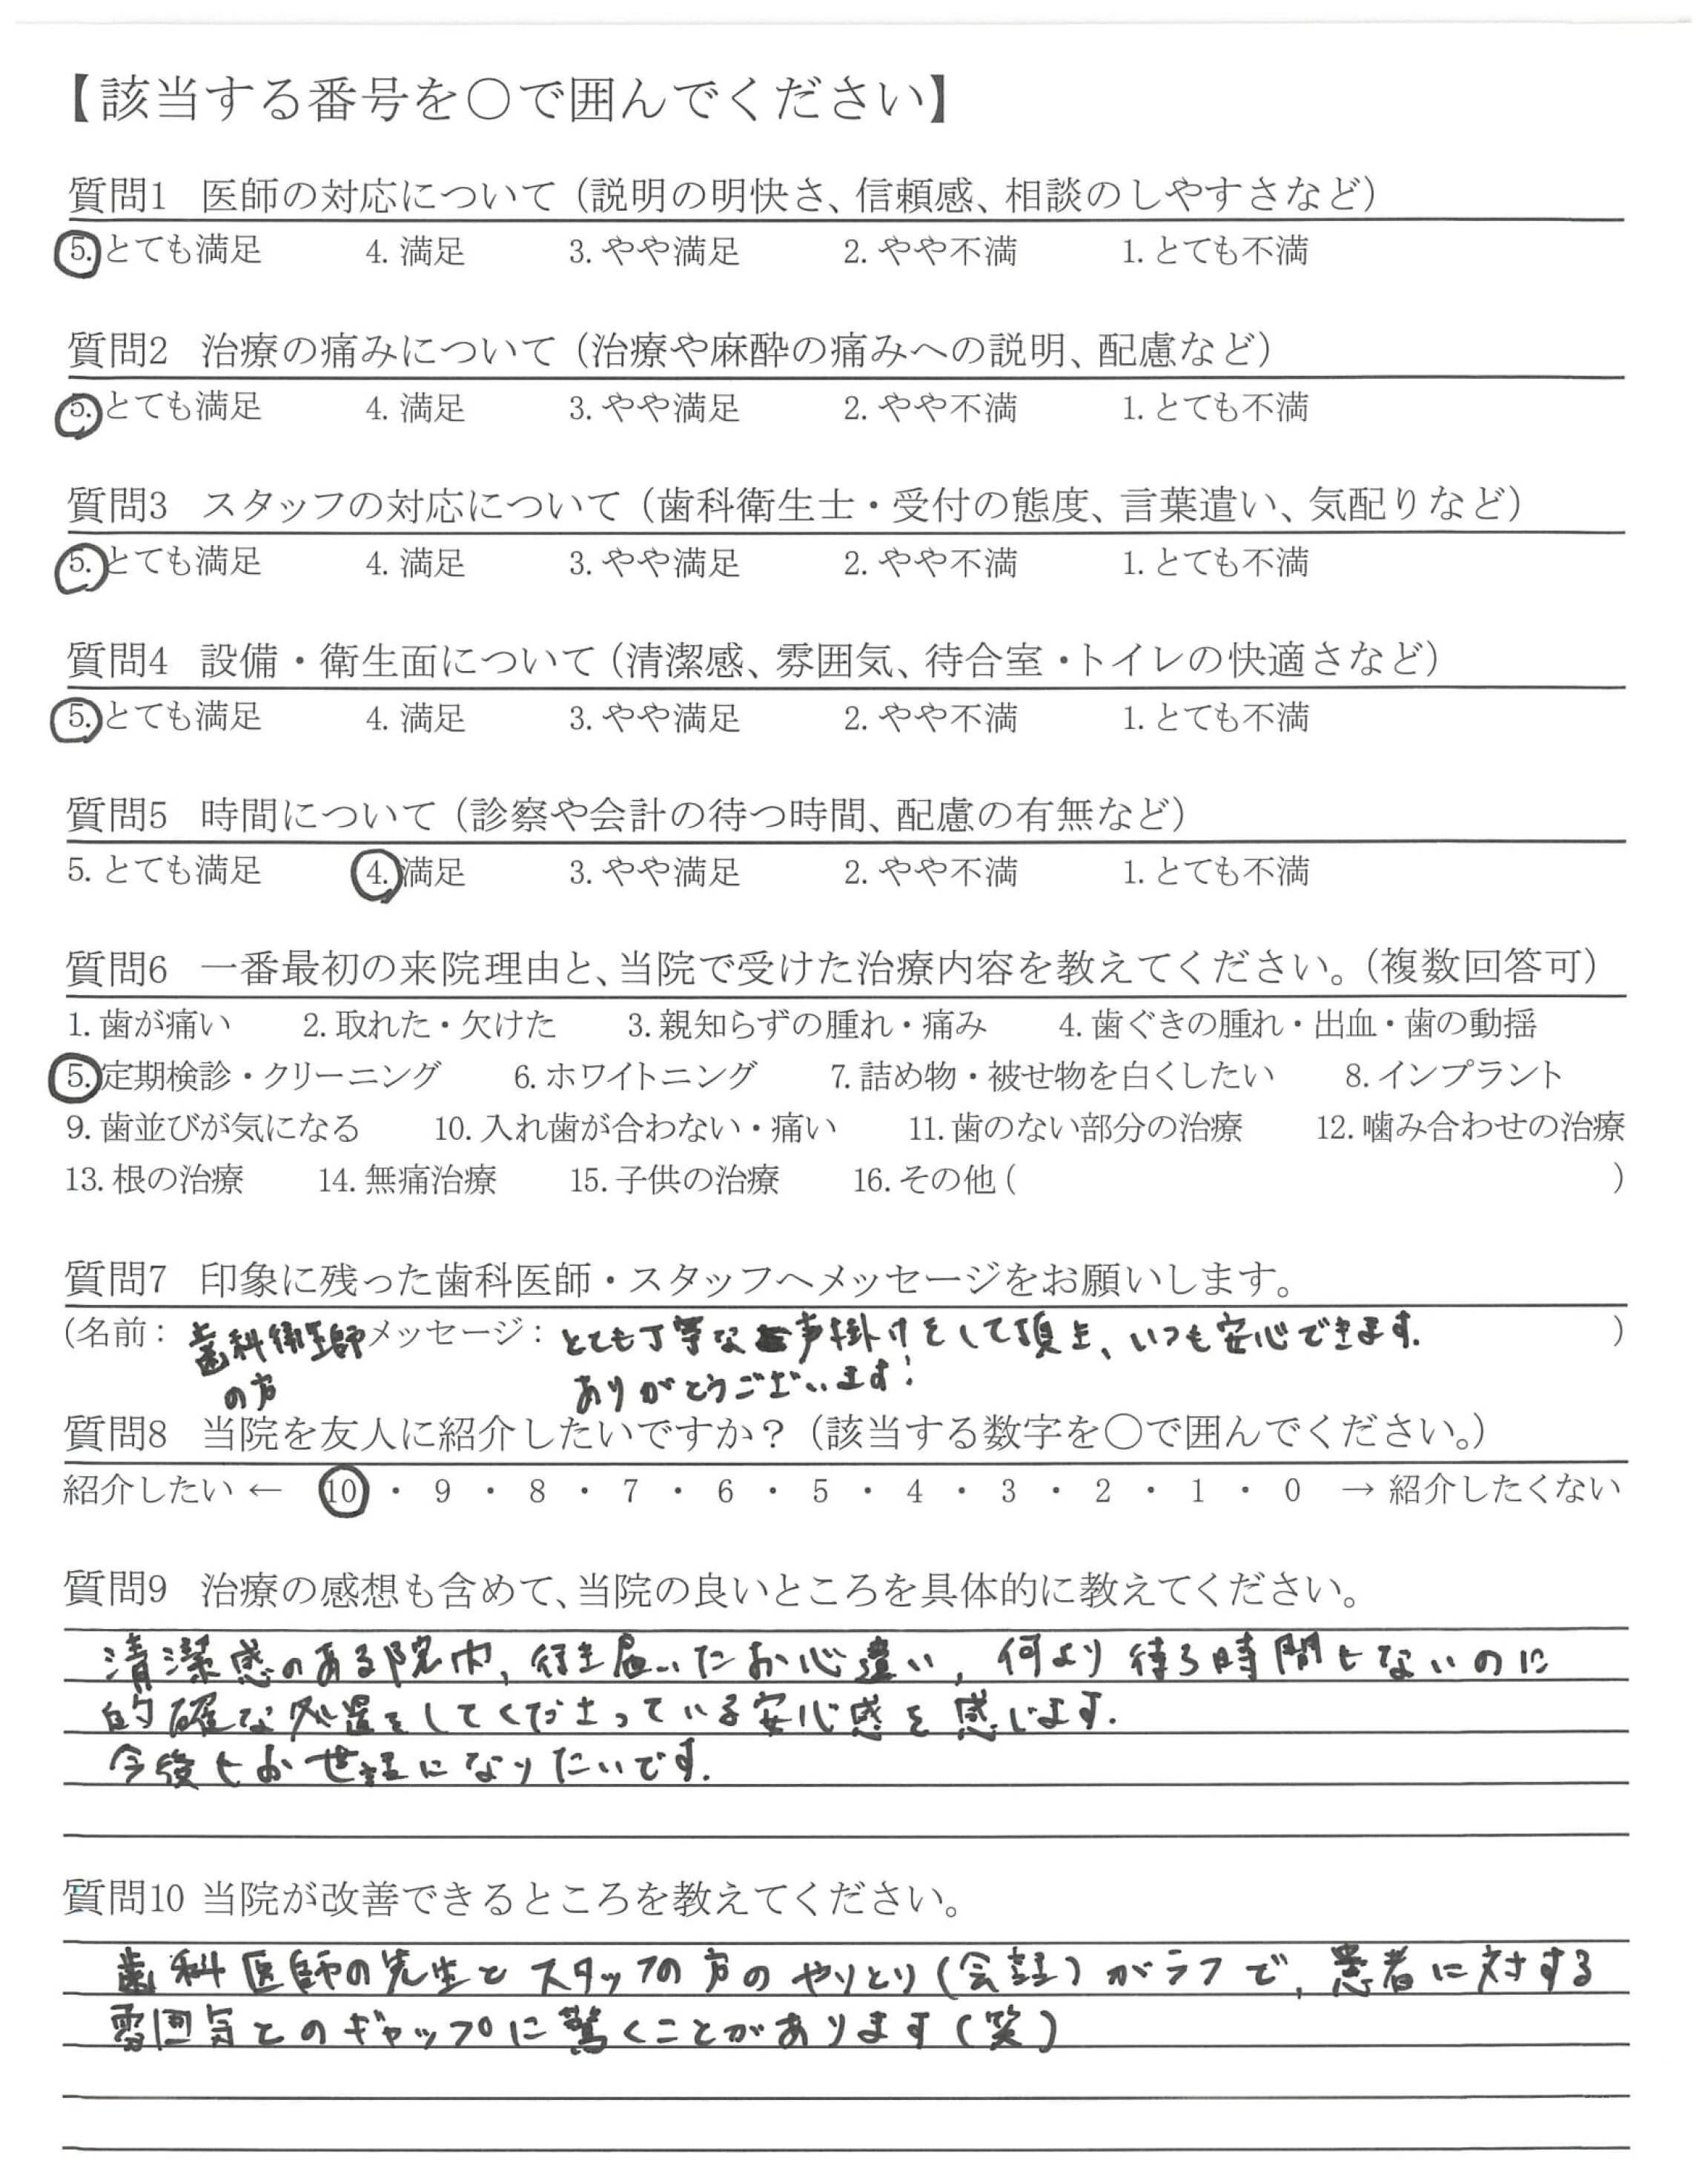 【該当する番号を○で囲んでください】
質問1 医師の対応について（説明の明快さ、信頼感、相談のしやすさなど）
5. とても満足 4. 満足 3. やや満足 2. やや不満 1. とても不満
質問2 治療の痛みについて（治療や麻酔の痛みへの説明、配慮など）
5. とても満足 4. 満足 3. やや満足 2. やや不満 1. とても不満
質問3 スタッフの対応について（歯科衛生士・受付の態度、言葉遣い、気配りなど）
5. とても満足 4. 満足 3. やや満足 2. やや不満 1. とても不満
質問4 設備・衛生面について（清潔感、雰囲気、待合室・トイレの快適さなど）
5. とても満足 4. 満足 3. やや満足 2. やや不満 1. とても不満
質問5 時間について（診察や会計の待つ時間、配慮の有無など）
5. とても満足 4. 満足 3. やや満足 2. やや不満 1. とても不満
質問6 一番最初の来院理由と、当院で受けた治療内容を教えてください。（複数回答可）
1. 歯が痛い 2. 取れた・欠けた 3. 親知らずの腫れ・痛み 4. 歯ぐきの腫れ・出血・歯の動揺
5. 定期検診・クリーニング 6. ホワイトニング 7. 詰め物・被せ物を白くしたい 8. インプラント
9. 歯並びが気になる 10. 入れ歯が合わない・痛い 11. 歯のない部分の治療 12. 噛み合わせの治療
13. 根の治療 14. 無痛治療 15. 子供の治療 16. その他 ( )
質問7 印象に残った歯科医師・スタッフへメッセージをお願いします。
(名前： 歯科衛生師 メッセージ： とても丁寧な声掛けをして頂き、いつも安心できます。 )
の方 ありがとうございます！
質問8 当院を友人に紹介したいですか？（該当する数字を○で囲んでください。）
紹介したい ← 10 ・ 9 ・ 8 ・ 7 ・ 6 ・ 5 ・ 4 ・ 3 ・ 2 ・ 1 ・ 0 → 紹介したくない
質問9 治療の感想も含めて、当院の良いところを具体的に教えてください。
清潔感のある院内、行き届いたお心遣い、何より待ち時間もないのに
的確な処置をしてくださっている安心感を感じます.
今後もお世話になりたいです.
質問10 当院が改善できるところを教えてください。
歯科医師の先生とスタッフの方のやりとり（会話）がラフで、患者に対する
雰囲気とのギャップに驚くことがあります（笑）